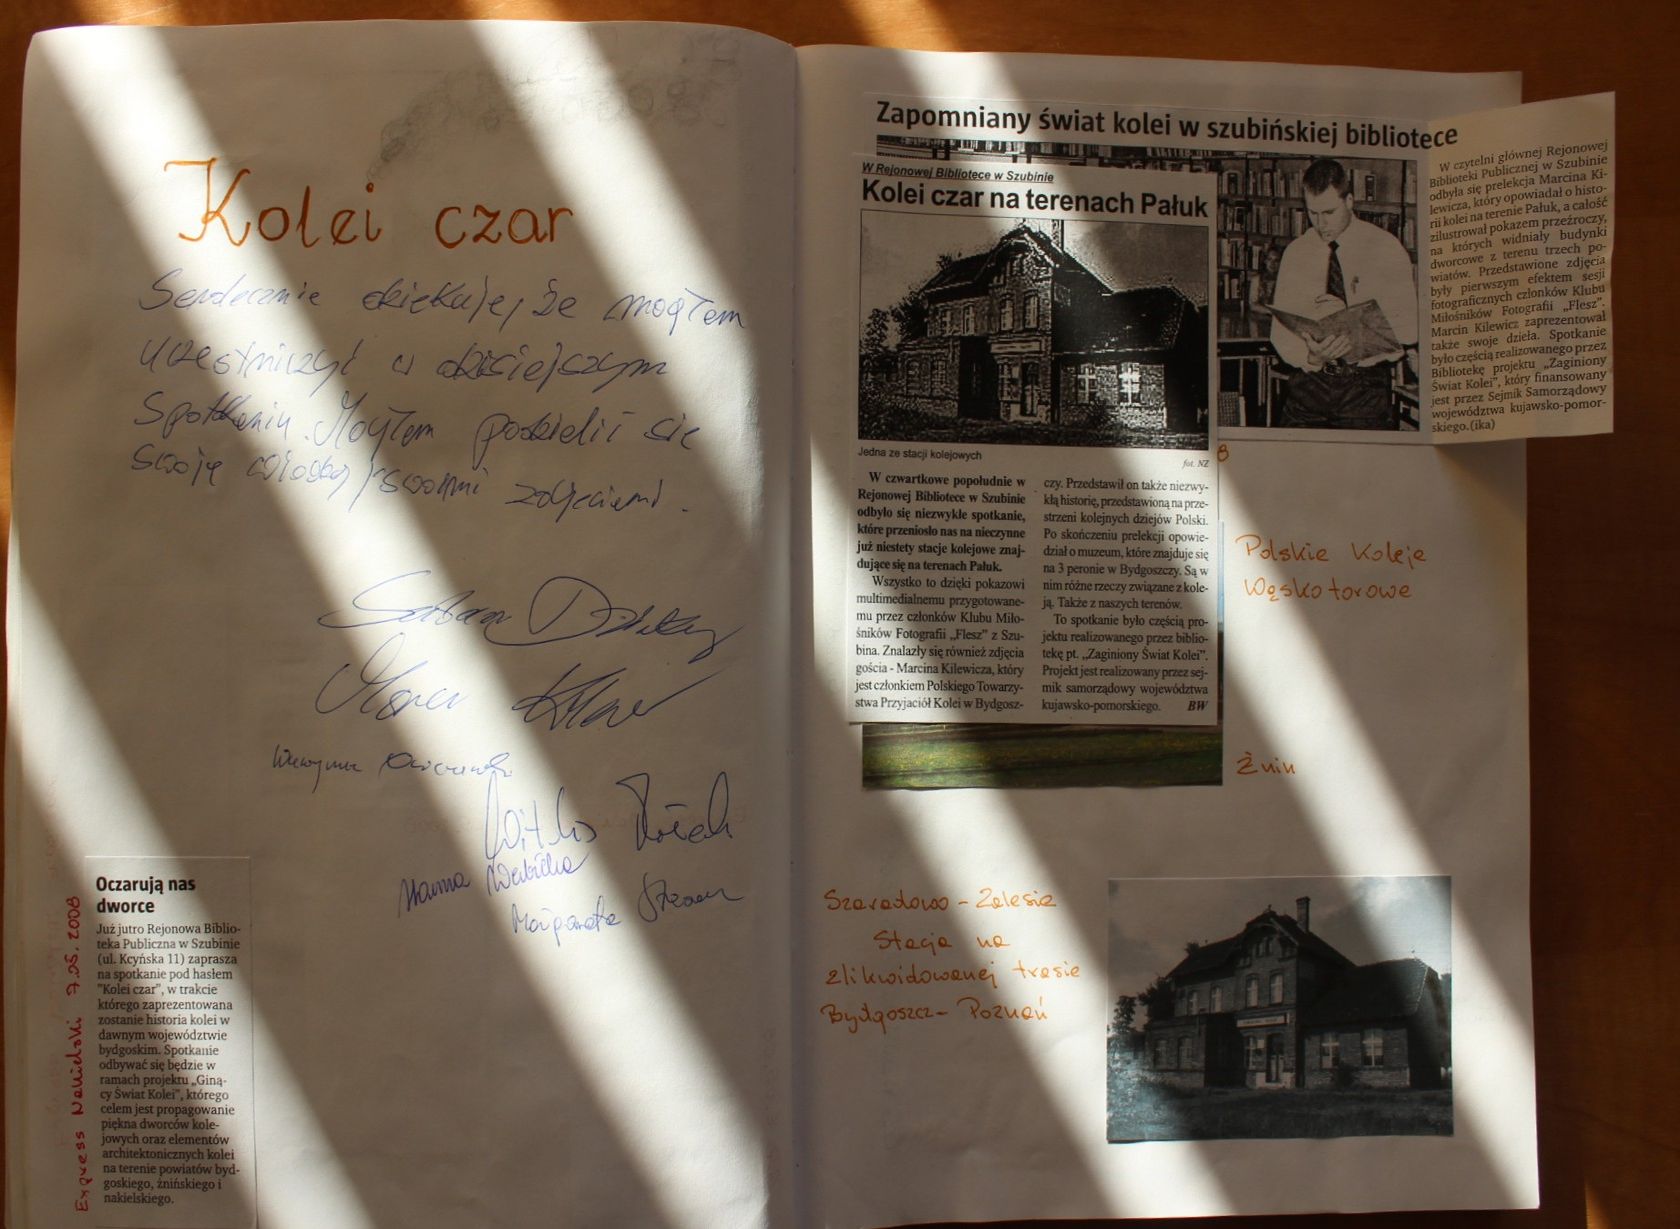 Kolei czar
Serdecznie dziękuję, że mogłem
uczestniczyć w dzisiejszym
spotkaniu. Mogłem podzielić się
swoją wiedzą, swoimi zdjęciami.
Hanna
Małgorzata
Express Nakielski 7.05.2008
Oczarują nas
dworce
Już jutro Rejonowa Biblio-
teka Publiczna w Szubinie
(ul. Kcyńska 11) zaprasza
na spotkanie pod hasłem
"Kolei czar", w trakcie
którego zaprezentowana
zostanie historia kolei w
dawnym województwie
bydgoskim. Spotkanie
odbywać się będzie w
ramach projektu „Giną-
cy Świat Kolei", którego
celem jest propagowanie
piękna dworców kole-
jowych oraz elementów
architektonicznych kolei
na terenie powiatów byd-
goskiego, żnińskiego i
nakielskiego.
Zapomniany świat kolei w szubińskiej bibliotece
W czytelni głównej Rejonowej
Biblioteki Publicznej w Szubinie
odbyła się prelekcja Marcina Ki-
lewicza, który opowiadał o histo-
rii kolei na terenie Pałuk, a całość
zilustrował pokazem przeźroczy,
na których widniały budynki
dworcowe z terenu trzech po-
wiatów. Przedstawione zdjęcia
były pierwszym efektem sesji
fotograficznych członków Klubu
Miłośników Fotografii „Flesz".
Marcin Kilewicz zaprezentował
także swoje dzieła. Spotkanie
było częścią realizowanego przez
Bibliotekę projektu „Zaginiony
Świat Kolei", który finansowany
jest przez Sejmik Samorządowy
województwa kujawsko-pomor-
skiego.(ika)
W Rejonowej Bibliotece w Szubinie
Kolei czar na terenach Pałuk
Jedna ze stacji kolejowych
fot. NZ
W czwartkowe popołudnie w
Rejonowej Bibliotece w Szubinie
odbyło się niezwykłe spotkanie,
które przeniosło nas na nieczynne
już niestety stacje kolejowe znaj-
dujące się na terenach Pałuk.
Wszystko to dzięki pokazowi
multimedialnemu przygotowane-
mu przez członków Klubu Miło-
śników Fotografii „Flesz" z Szu-
bina. Znalazły się również zdjęcia
gościa - Marcina Kilewicza, który
jest członkiem Polskiego Towarzy-
stwa Przyjaciół Kolei w Bydgosz-
czy. Przedstawił on także niezwy-
kłą historię, przedstawioną na prze-
strzeni kolejnych dziejów Polski.
Po skończeniu prelekcji opowie-
dział o muzeum, które znajduje się
na 3 peronie w Bydgoszczy. Są w
nim różne rzeczy związane z kole-
ją. Także z naszych terenów.
To spotkanie było częścią pro-
jektu realizowanego przez biblio-
tekę pt. „Zaginiony Świat Kolei".
Projekt jest realizowany przez sej-
mik samorządowy województwa
kujawsko-pomorskiego. BW
Polskie Koleje
Wąskotorowe
Żnin
Szaradowo - Zalesie
Stacja na
zlikwidowanej trasie
Bydgoszcz - Poznań